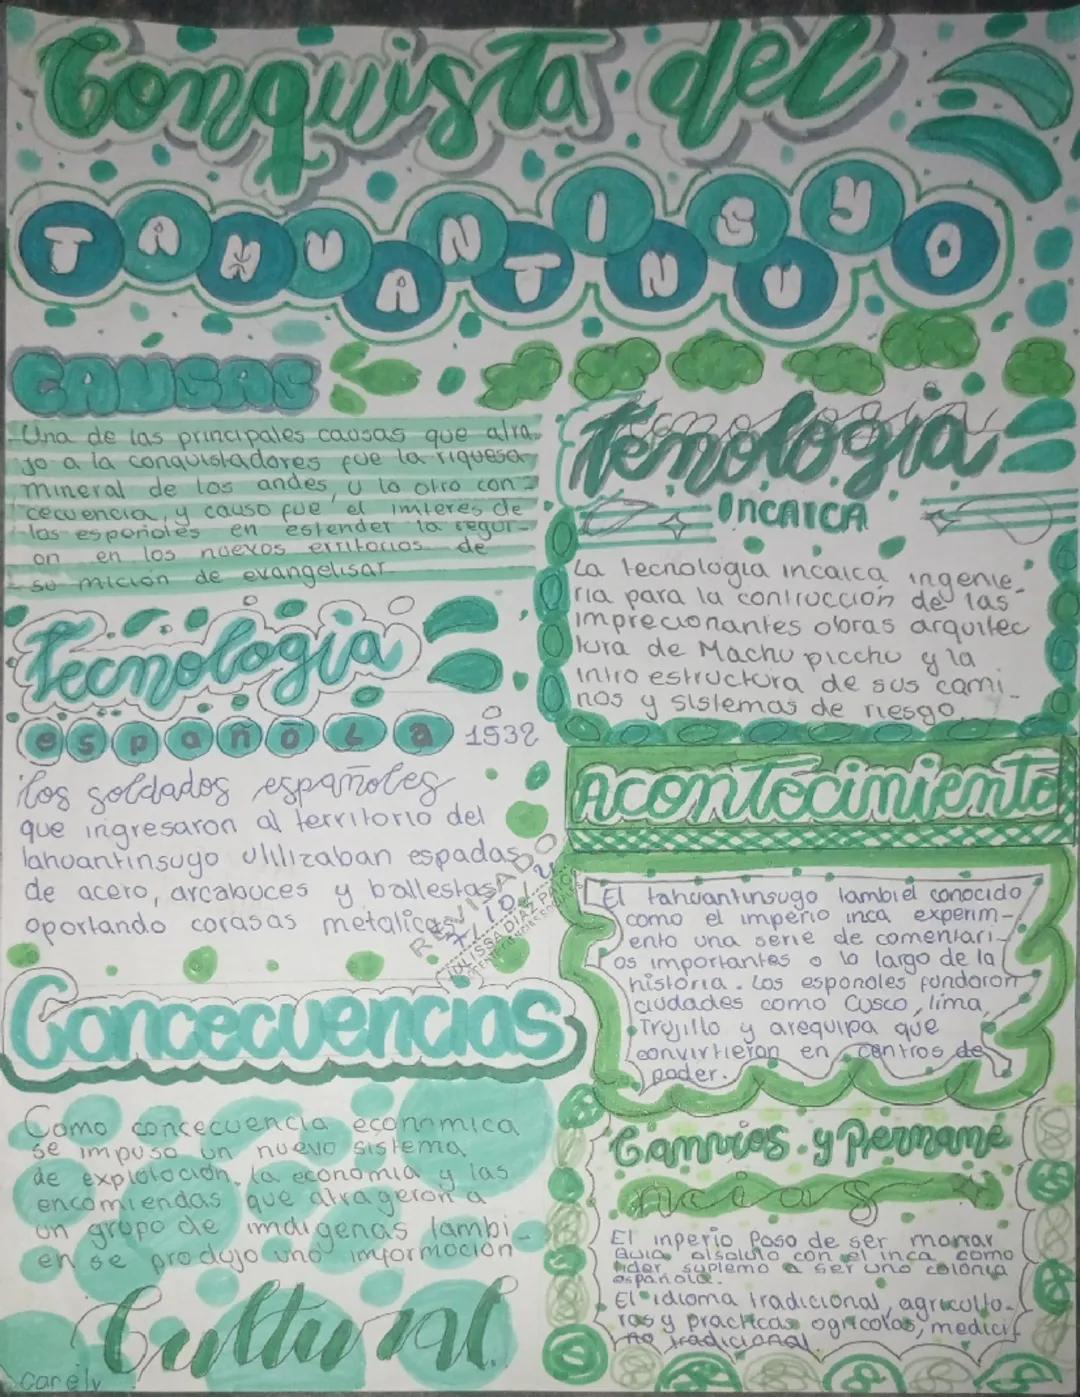 Conquista del
TAHUANTINSUYO
CAUSAS
Una de las principales causas que atra-
jo a la conquistadores fue la riquesa
mineral de los andes, y la otro con-
cecuencia, y causo fue el imteres de
las españoles en estender la
on en los nuevos de
su mición de evangelisar
Tecnologia
española 1532
los soldados españoles
que ingresaron al territorio del
tahuantinsuyo utilizaban espadas
de acero, arcabuces y ballestas
oportando corasas metalicas
REVISADO
JULISSA DIAZ PAICO
Concecuencias
Como concecuencia económica
se impuso un nuevo sistema
de explotoción. la economía y las
encomiendas que atrageron a
un grupo de indigenas tambi-
en se produjo uno imformoción
Cultural
Carely
Temologia
INCAICA
La tecnologia incaica ingenie-
ria para la contrucción de las
imprecionantes obras arquitec
tura de Machu picchu y la
intro estructura de sus cami-
nos y sistemas de riesgo
Acontecimiento
El tahuantinsugo tambiel conocido
como el imperio inca experim-
ento una serie de comentari-
os importantes o lo largo de la
historia. Los esponoles fundaron
ciudades como Cusco, lima,
Trujillo y arequipa que
convirtieron en centros de
poder.
Camvios y Permane
ncias
El inperio Paso de ser monar
Quia absoluto con el inca como
lider suplemo a ser uno colonia
española.
El idioma tradicional, agricullo-
ras y practicas ogricolas, medici-
na tradicional